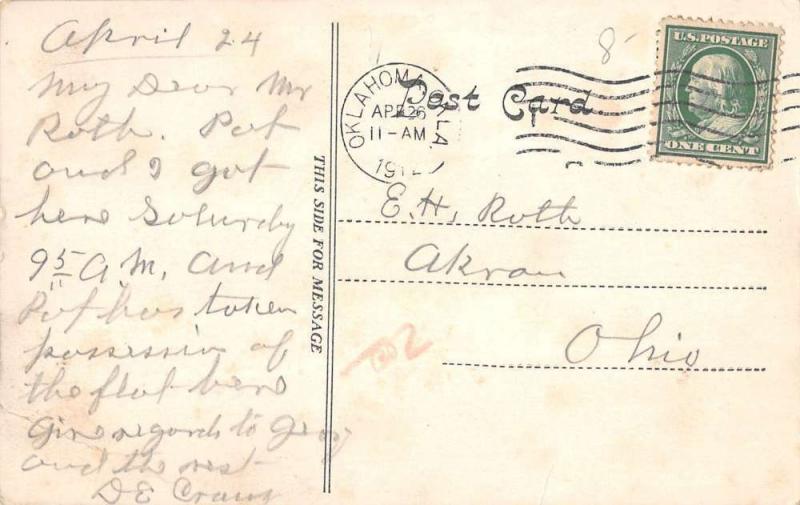 April 24
My Dear Mr
Roth. Pat
and I got
here Saturday
9 5/11 A.M. and
Pat has taken
possession of
the flat here
Give regards to
and the rest
D E
THIS SIDE FOR MESSAGE
Post Card
OKLAHOMA OKLA.
APR 26
11-AM
191
8
U.S. POSTAGE
ONE CENT
E. H. Roth
Akron
Ohio